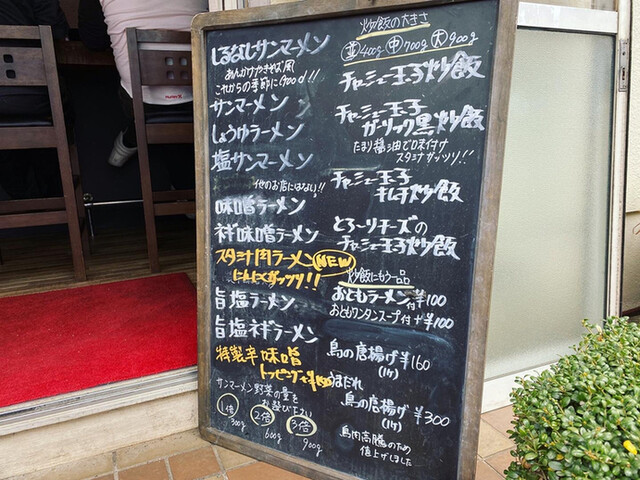 しるなしサンマーメン
あんかけやきそば風
これからの季節にGood!!
サンマーメン
しょうゆラーメン
塩サンマーメン
他のお店にはない!!
味噌ラーメン
ネギ味噌ラーメン
スタミナ肉ラーメン NEW
にんにくガッツリ!!
旨塩ラーメン
旨塩ネギラーメン
特製辛味噌
トッピング+¥150
サンマーメン野菜の量を
お選び下さい
1倍 2倍 3倍
300g 600g 900g
炒飯の大きさ
並400g 中700g 大900g
チャーシュー玉子炒飯
チャーシュー玉子
ガーリック黒炒飯
たまり醤油で味付け
スタミナガッツリ!!
チャーシュー玉子
キムチ炒飯
とろ〜りチーズの
チャーシュー玉子炒飯
炒飯にもう一品
おともラーメン付+¥100
おともワンタンスープ付+¥100
鳥の唐揚げ¥160
(1ケ)
うまだれ
鳥の唐揚げ¥300
(1ケ)
鳥肉高騰のため
値上げしました